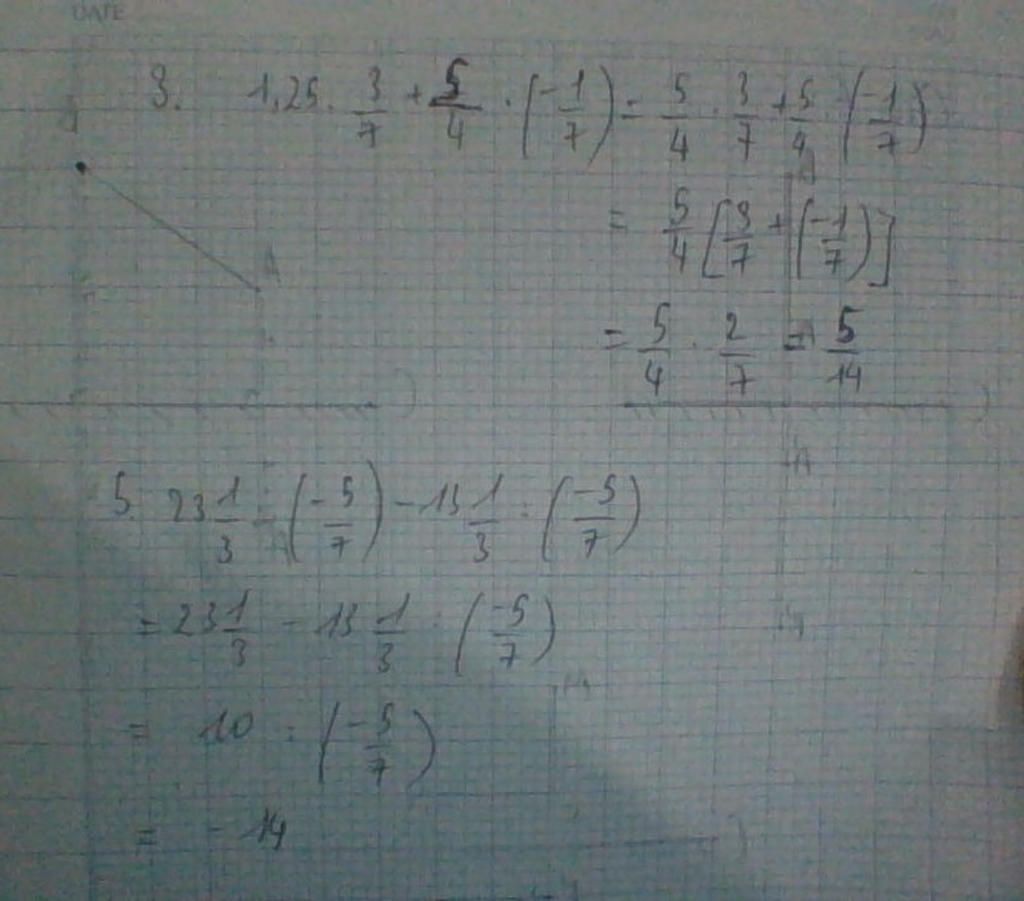 DATE
3. 1,25 . 3/7 + 5/4 . (-1/7) = 5/4 . 3/7 + 5/4 (-1/7)
= 5/4 [3/7 + (-1/7)]
= 5/4 . 2/7 = 5/14
5. 23 1/3 : (-5/7) - 13 1/3 : (-5/7)
= 23 1/3 - 13 1/3 : (-5/7)
= 10 : (-5/7)
= -14